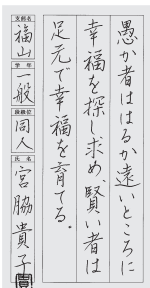 愚か者ははるか遠いところに
幸福を探し求め、賢い者は
足元で幸福を育てる。
支部名
福山
学年
一般
段級位
同人
氏名
宮脇貴子